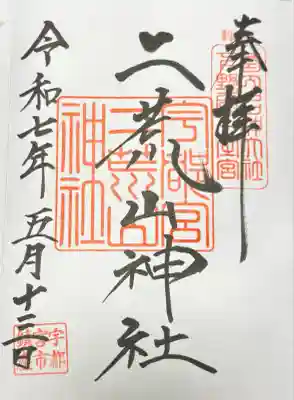 奉拝
下野國一之宮
二荒山神社
宇都宮
二荒山
神社
令和七年五月十三日
宇都
宮市
鎮座